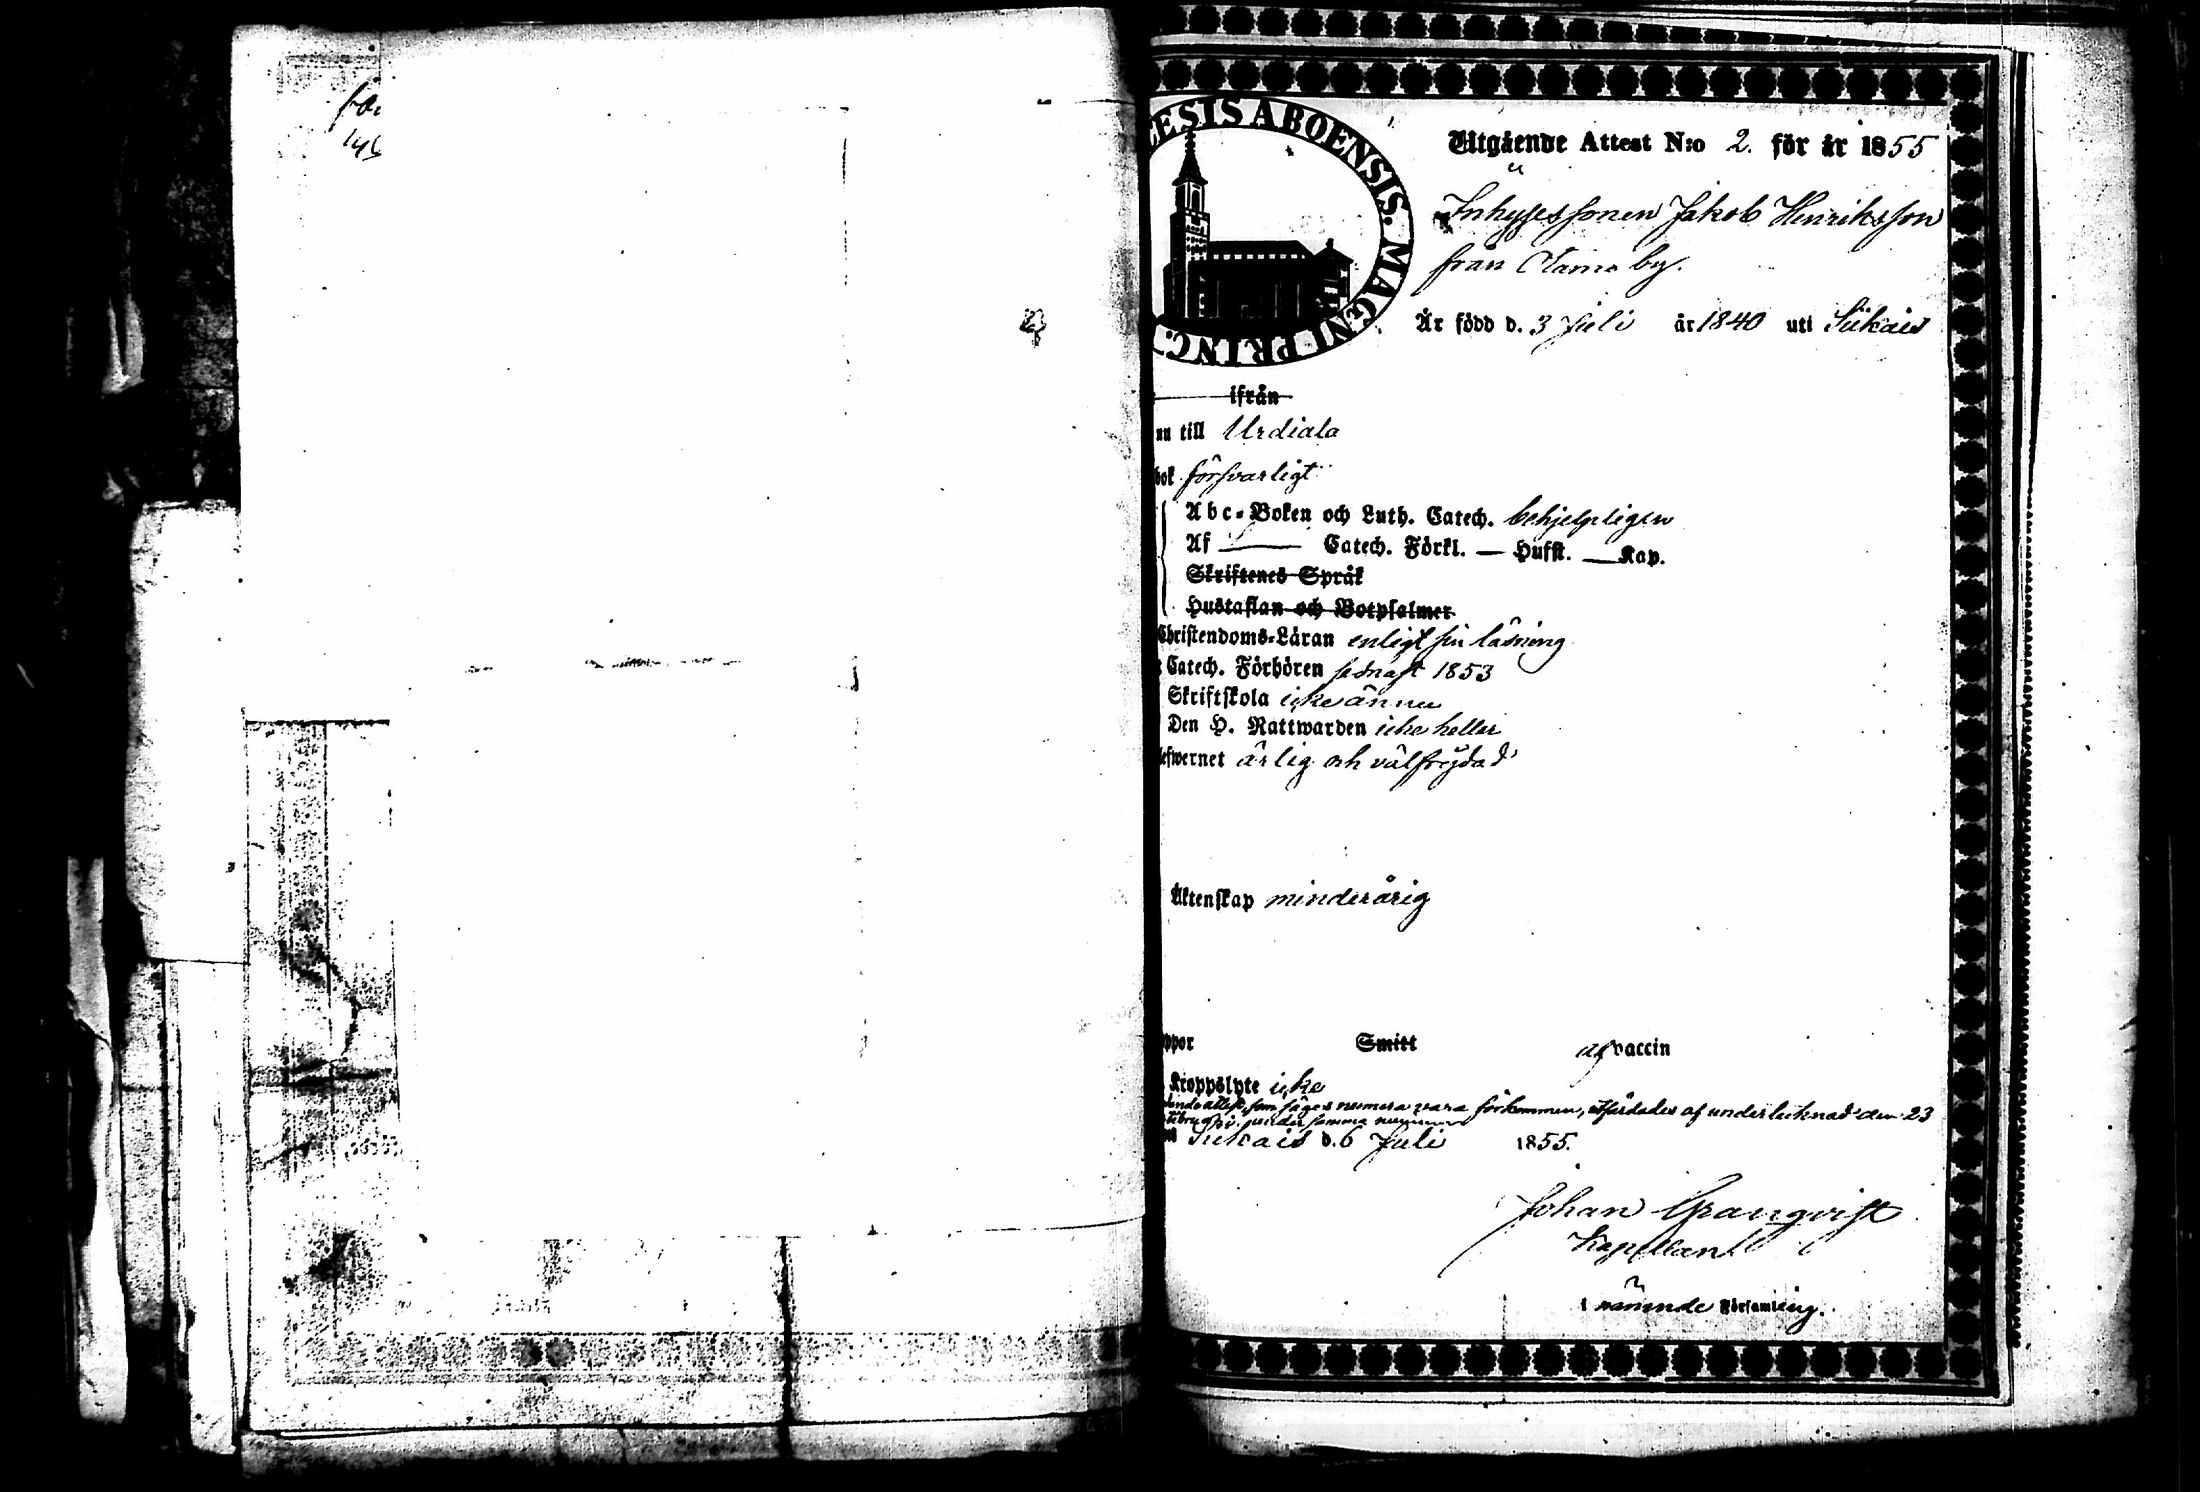 ESIS ABOENSIS. MAGNI PRINC.
Utgående Attest N:o 2. för år 1855
Inhysessonen Jakob Henriksson
från by.
Är född d. 3 Juli år 1840 uti Siikais
ifrån
nu till Urdiala
bok försvarligt
Abc-Boken och Luth. Catech. behjelpligen
Af — Catech. Förkl. — Hufst. — Kap.
Skriftenes Språk
Hustaflan och Botpsalmer
Christendoms-Läran enligt sin läsning
Catech. Förhören sednast 1853
Skriftskola icke ännu
Den H. Nattwarden icke heller
lefwernet ärlig och välfrejdad
Äktenskap minderårig
ppor Smitt af vaccin
Kroppslyte icke
ende attest, som säges numera vara förkommen, utfärdades af undertecknad den 23
under samma nummer
Siikais d. 6 Juli 1855.
Johan Granqvist
Kapellan
i nämnde Församling.